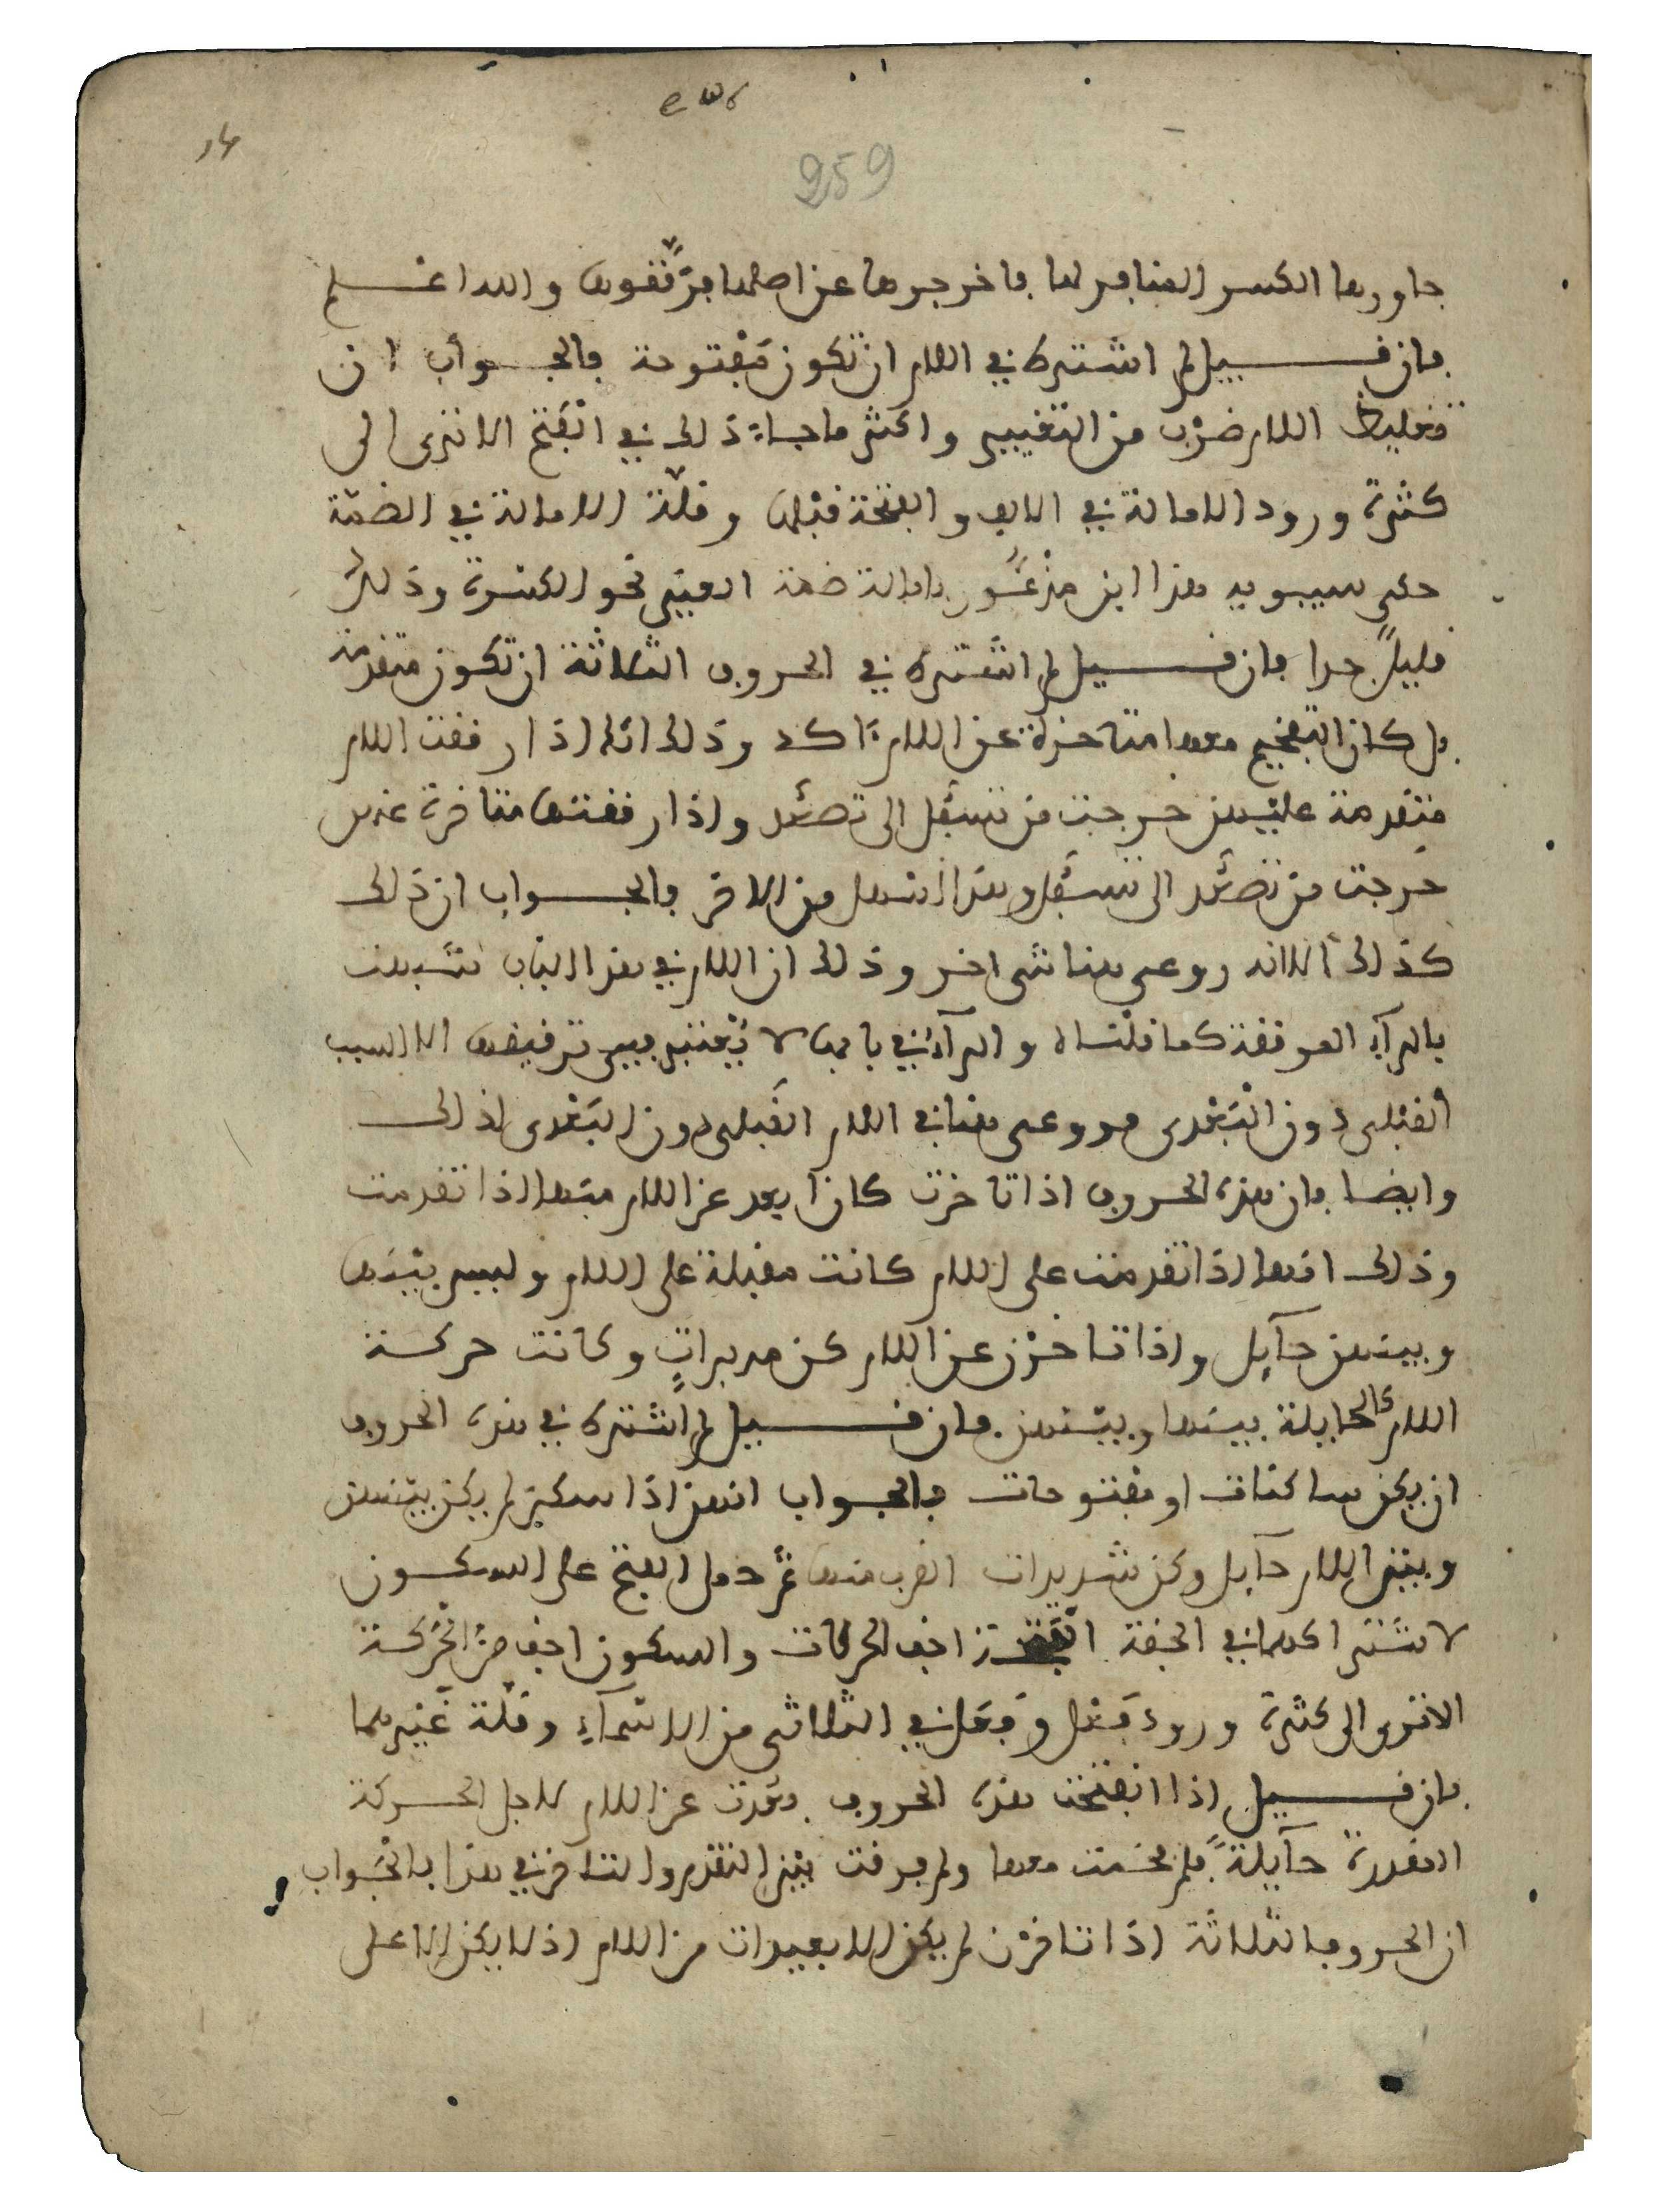 259
جاورها الكسر المنافر لها فاخرجوها عن اصلها فرققوها والله اعلم
فان قيل لم اشترك في اللام ان تكون مفتوحة فالجواب ان
تغليظ اللام ضرب من التغيير واكثر ما جاء ذلك في الفتح الا ترى الى
كثرة ورود الامالة في الالف والفتحة قبلها وقلة الامالة في الضمة
حكى سيبويه هذا ابن مذعور بامالة ضمة العين نحو الكسرة وذلك
قليل جدا فان قيل لم اشترك في الحروف الثلاثة ان تكون متقدمة
بل كان التفخيم معها متأخرة عن اللام آكد وذلك انك اذا رققت اللام
متقدمة عليهن خرجت من تسفل الى تصعد واذا رققتها متاخرة عنهن
خرجت من تصعد الى تسفل وهذا اسهل من الاخر فالجواب ان ذلك
كذلك الا انه روعي هنا شي اخر وذلك ان اللام في هذا الباب شبهت
بالراء المرققة كما قلناه والراء في بابها لا يعتبر فيي ترقيقها الا السبب
القبلي دون البعدي فروعي هنا في اللام القبلي دون البعدي لذلك
وايضا فان هذه الحروف اذا تاخرت كان ابعد عن اللام منها اذا تقدمت
وذلك انها اذا تقدمت على اللام كانت مقبلة على اللام وليس بينها
وبينهن حآيل واذا تاخرن عن اللام كن مدبرات وكانت حركة
اللام كالحايلة بينها وبينهن فان قيل لم اشترك في هذه الحروف
ان يكن ساكنات او مفتوحات فالجواب انهن اذا سكن لم يكن بينهن
وبين اللام حآيل وكن شديدات القرب منها ثم حمل الفتح على السكون
لاشتراكهما في الخفة الفتحة اخف الحركات والسكون اخف من الحركة
الا ترى الى كثرة ورود فعل وفعل في الثلاثي من الاسمآء وقلة غيرهما
فان قيل اذا انفتحت هذه الحروف بعدت عن اللام لاجل الحركة
المقدرة حآيلة فلم فخمت معها ولم فرقت بين التقدم والتاخر في هذا فالجواب
ان الحروف الثلاثة اذا تاخرن لم يكن الا بعيدات من اللام اذ لا يكن الا على